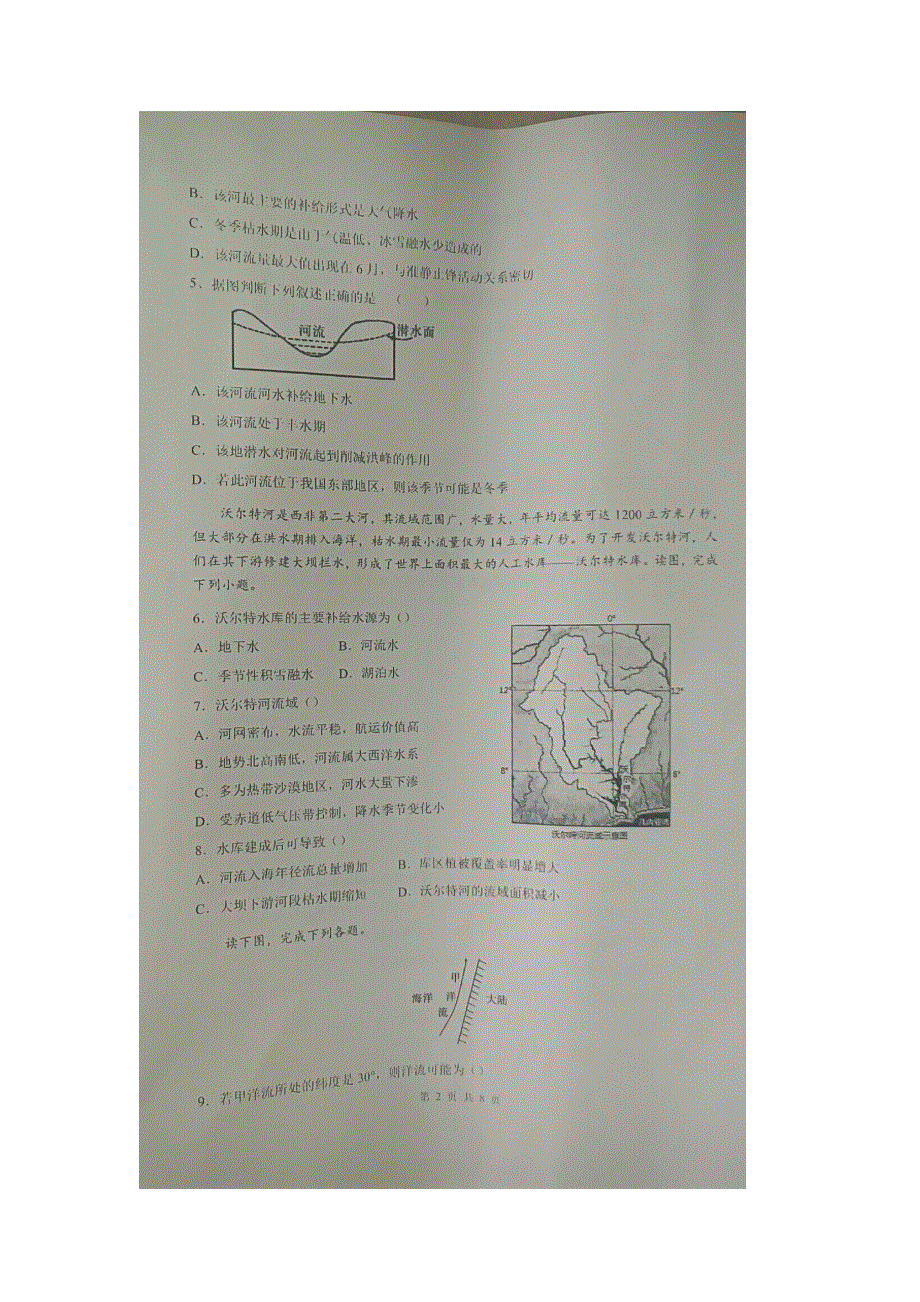 B．该河最主要的补给形式是大气降水
C．冬季枯水期是由于气温低、冰雪融水少造成的
D．该河流量最大值出现在6月，与准静止锋活动关系密切
5、据图判断下列叙述正确的是 （ ）
河流 潜水面
A．该河流河水补给地下水
B．该河流处于丰水期
C．该地潜水对河流起到削减洪峰的作用
D．若此河流位于我国东部地区，则该季节可能是冬季
沃尔特河是西非第二大河，其流域范围广，水量大，年平均流量可达1200立方米／秒，
但大部分在洪水期排入海洋，枯水期最小流量仅为14立方米／秒。为了开发沃尔特河，人
们在其下游修建大坝拦水，形成了世界上面积最大的人工水库——沃尔特水库。读图，完成
下列小题。
6．沃尔特水库的主要补给水源为()
A．地下水 B．河流水
C．季节性积雪融水 D．湖泊水
7．沃尔特河流域()
A．河网密布，水流平稳，航运价值高
B．地势北高南低，河流属大西洋水系
C．多为热带沙漠地区，河水大量下渗
D．受赤道低气压带控制，降水季节变化小
0°
12° 12°
8° 8°
沃尔特河流域示意图
8．水库建成后可导致()
A．河流入海年径流总量增加 B．库区植被覆盖率明显增大
C．大坝下游河段枯水期缩短 D．沃尔特河的流域面积减小
读下图，完成下列各题。
甲
海洋 洋 大陆
流
9．若甲洋流所处的纬度是30°，则洋流可能为()
第 2 页 共 8 页